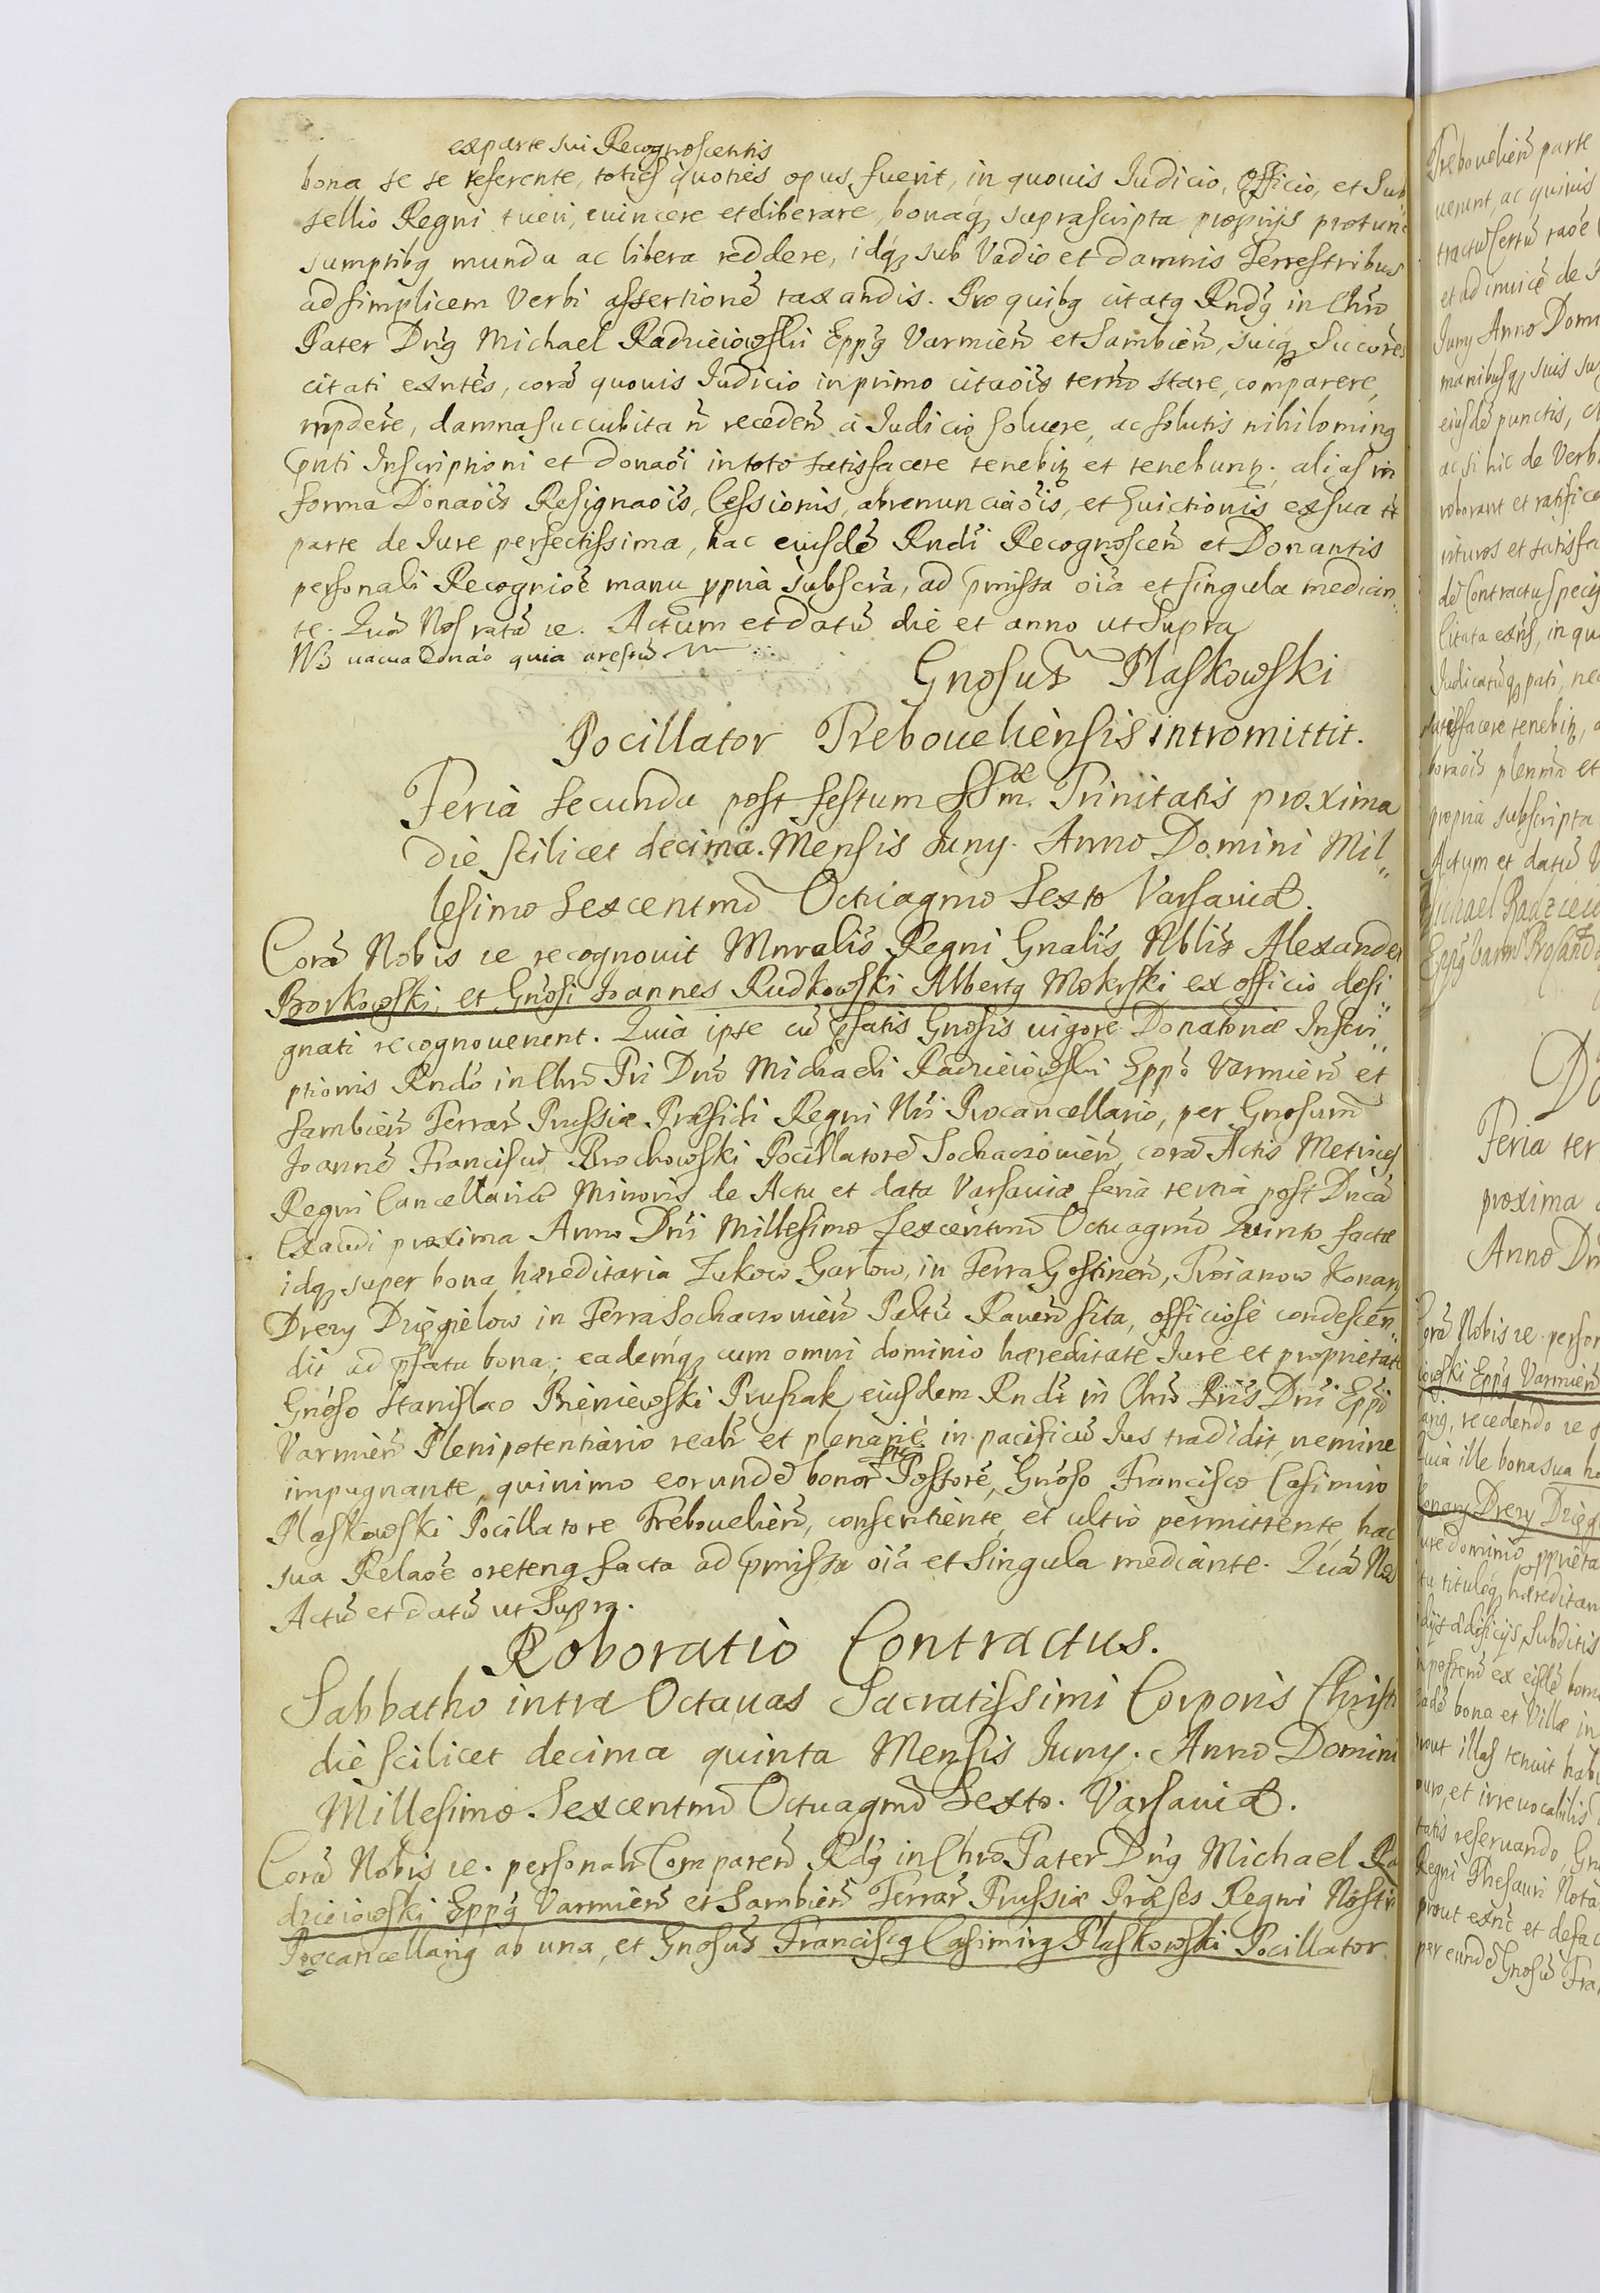 ex parte sui Recognoscentis
bona se se referente, toties quoties opus fuerit, in quouis Judicio, Officio, et Sub
sellio Regni tueri, euincere et eliberare, bonaq3 suprascripta proprijs protunc
sumptibq munda ac libera reddere, idq3 sub Vadio et damnis Terrestribus
ad simplicem Verbi assertionē taxandis. Pro quibq citatq Rndq in Chro
Pater Dnq Michael Radzieiowski Eppq Varmień et Sambień, suiq3 Sucores
citati exñtes, corā quouis Judicio in primo citaōis termo stare, comparere,
rñpdere, damna succubita ñ recedeñ à Judicio soluere, ac solutis nihilominq
pñti Inscriptioni et donaōi in toto satisfacere tenebit3 et tenebunt3. alias in
forma Donaōis Resignaōis, Cessionis, abrenunciaōis, et Euictionis ex sua
parte de Jure perfectissima, hac eiusdē Rndi Recognosceñ et Donantis
personali Recogniōe manu ppria subscra, ad pmissa oīa et singula median
te. Quā Nos ratā ie. Actum et datū die et anno ut Supra
NB vacua Donāo quia arestū
Gnosus Plaskowski
Pocillator Treboueliensis intromittit.
Feria secunda post festum SSmæ Trinitatis proxima
die scilicet decima. Mensis Juny. Anno Domini Mil„
lesimo Sexcentmō Octuagmō Sexto Varsauiæ.
Corā Nobis ie recognouit Mnralis Regni Gnalis Nblis Alexander
Borkowski, et Gnosi Joannes Rudkowski Albertq Mokrski ex officio desi„
gnati recognouerent. Quia ipse cū pfatis Gnosis uigore Donatoriæ Inscri„
ptionis Rndo in Chro Pri Dno Michaeli Radzieiowski Eppo Varmień et
Sambień Terrar Prussiæ Præsidi Regni Nri Procancellario, per Gnosum
Joannē Franciscū Brochowski Pocillatorē Sochaczouień, corā Actis Metrices
Regni Cancellariæ Minoris de Actu et data Varsauiæ feria tertia post Dnicā
Exaudi proxima Anno Dni Millesimo Sexcentmō Octuagmō Quinto factæ
idq3 super bona hæreditaria Zukow Garlow, in Terra Gostineñ, Troianow Konary
Drezy Dzięgielow in Terra Sochaczouień Paltū Raueñ sita, officiose condescen„
dit ad pfata bona; eademq3 cum omni dominio hæreditate Jure et proprietate
Gnoso Stanislao Bieniewski Pruszak eiusdem Rndi in Chro Pris Dni Eppi
Varmień Plenipotentiario realr et plenarie in pacificū Jus tradidit, nemine
impugnante, quinimo eorundē bonor Possorē, Gnoso Francisco Casimiro
Plaskowski Pocillatore Trebouelień, consentiente, et ultro permittente hac
sua Relaōe oretenq facta ad pmissa oīa et singula mediante. Quā Nos
Actū et datū ut Supra.
Roboratio Contractus.
Sabbatho intra Octauas Sacratissimi Corporis Christi
die scilicet decima quinta Mensis Juny. Anno Domini
Millesimo Sexcentmō Octuagmō Sexto. Varsauiæ.
Corā Nobis ie. personalr Compareñ Rdq in Chro Pater Dnq Michael Ra
dzieiowski Eppq Varmień et Sambień Terrar Prussiæ Præses Regni Nostri
Procancellariq ab una, et Gnosus Franciscq Casimirq Plaskowski Pocillator
Trebouelień parte
uenerunt, ac quiuis
Juny Anno Domi
manibusq3 suis
eiusdē punctis,
ac si hic de Verb
roborant et ratifica
rituros et satisfa
dē Contractus speci
litata exñs, in qu
Judicatūq3 pati, ne
satisfacere tenebit3,
boraōis plenria et
propria subscripta
Actum et datū
Michael Radzieio
Feria ter
proxima
Anno Dn
Corā Nobis ie. person
iowski Eppq Varmień
ariq, recedendo ie
Quia ille bona sua
Konary Drezy Dzięg
ure dominio pprieta
tu tituloq3 hæreditar
dijs ædificijs, Subditis
bona et Villæ in
prout illas tenuit habu
puro, et irreuocabilis
tatis reseruando, Gn
Regni Thesauri Nota
prout exñt et defac
per eundē Gnosū Fra